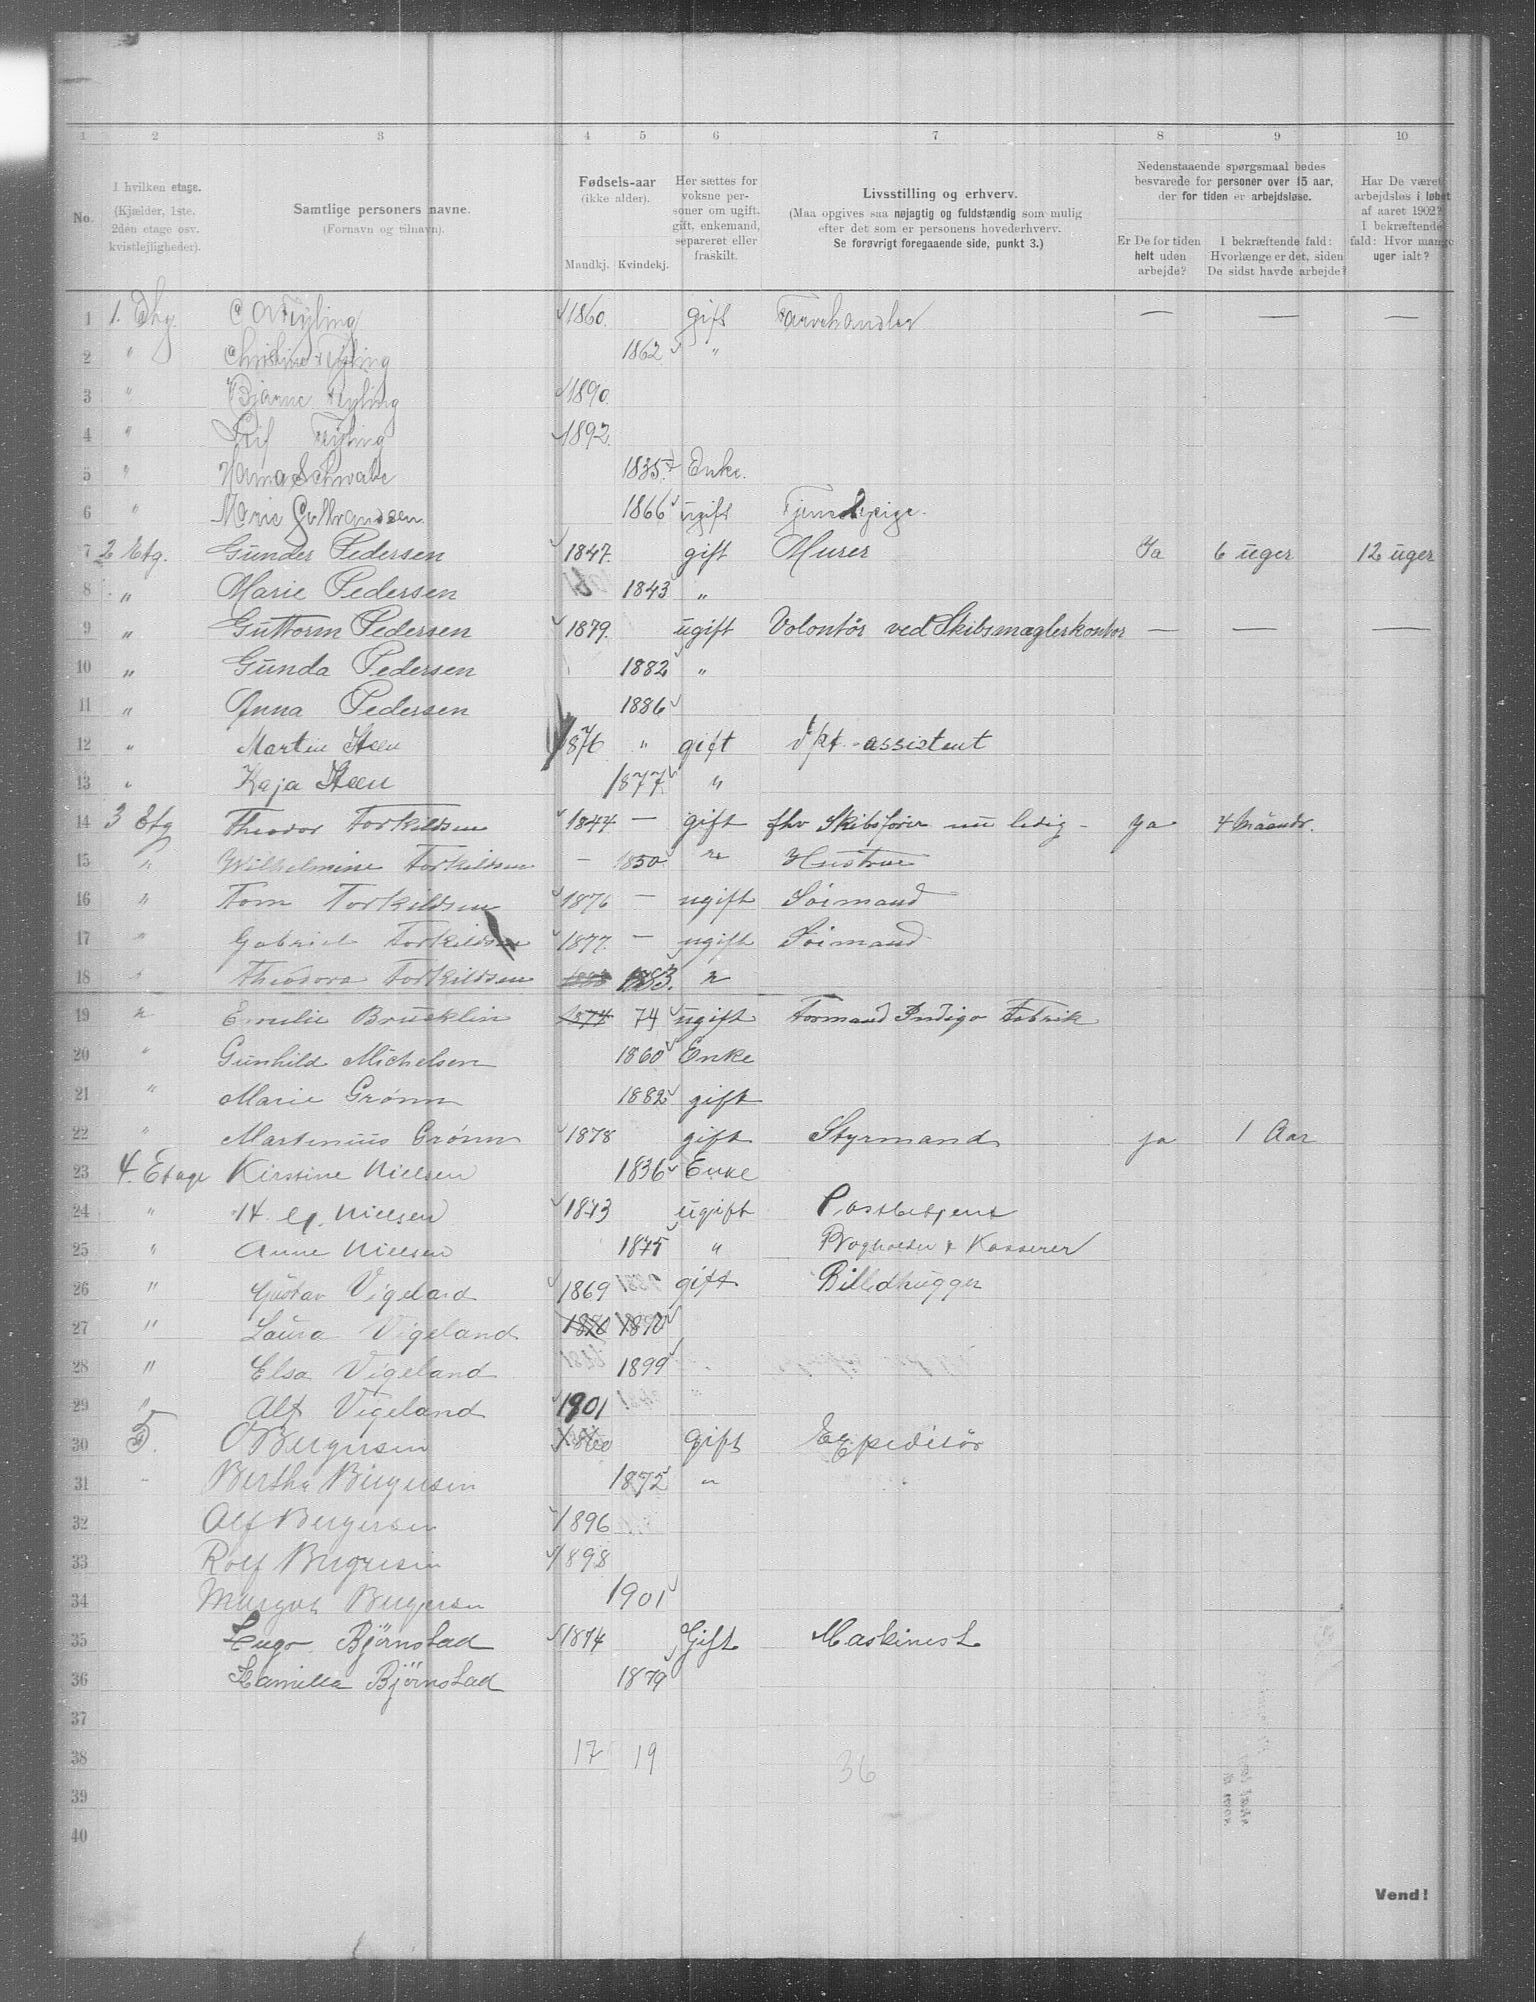 1 2 3 4 5 6 7 8 9 10
No.
I hvilken etage.
(Kjælder, 1ste.
2den etage osv.
kvistlejligheder).
Samtlige personers navne.
(Fornavn og tilnavn).
Fødsels-aar
(ikke alder).
Mandkj. Kvindekj.
Her sættes for
voksne per-
soner om ugift,
gift, enkemand,
separeret eller
fraskilt.
Livsstilling og erhverv.
(Maa opgives saa nøjagtig og fuldstændig som mulig
efter det som er personens hovederhverv.
Se forøvrigt foregaaende side, punkt 3.)
Nedenstaaende spørgsmaal bedes
besvarede for personer over 15 aar,
der for tiden er arbejdsløse.
Er De for tiden
helt uden
arbejde?
I bekræftende fald:
Hvorlænge er det, siden
De sidst havde arbejde?
Har De været
arbejdsløs i løbet
af aaret 1902?
I bekræftende
fald: Hvor mange
uger ialt?
1 1. 1860. gift Farvehandler — — —
2 " Christine 1862 "
3 " Bjarne 1890
4 " Leif 1892
5 " Hanna Schwabe 1835 Enke.
6 " Marie Gulbrandsen 1866 ugift Tjenestepige.
7 2 Etg. Gunder Pedersen 1847. gift Murer Ja 6 uger 12 uger
8 " Marie Pedersen 1843 "
9 " Guttorm Pedersen 1879. ugift Volontør ved Skibsmæglerkontor — — —
10 " Gunda Pedersen 1882 "
11 " Anna Pedersen 1886
12 " Martin Steen 1876 " gift assistent
13 " Kaja Steen 1877 "
14 3 Etg Theodor Torkildsen 1844 — gift fhv Skibsfører nu ledig - ja 4 Maaneder.
15 " Wilhelmine Torkildsen — 1850 " Hustrue
16 " Tom Torkildsen 1876 — ugift Sømand
17 " Gabriel Torkildsen 1877. — ugift Sømand
18 " Theodora Torkildsen 1883 1883. "
19 " Emilie 1874 74 ugift Formand Indigo Fabrik
20 " Gunhild Michelsen 1860 Enke
21 " Marie Grønn 1882 gift
22 " Martinius Grønn 1878 gift Styrmand ja 1 Aar
23 4. Etage Kirstine Nielsen 1836 Enke
24 " Nielsen 1873 ugift Postbetjent
25 " Anne Nielsen 1875 " Kasserer
26 " Gustav Vigeland 1869 gift Billedhugger
27 " Laura Vigeland 1870 1870
28 " Elsa Vigeland 1899
29 " Alf Vigeland 1901
30 5. O Bergersen 1860 gift Expeditør
31 " Bertha Bergersen 1872 "
32 Alf Bergersen 1896
33 Rolf Bergersen 1898
34 Margot Bergersen 1901
35 Hugo Bjørnstad 1874 Gift Maskinist
36 Kamilla Bjørnstad 1879
37
38 17 19 36
39
40
Vend!